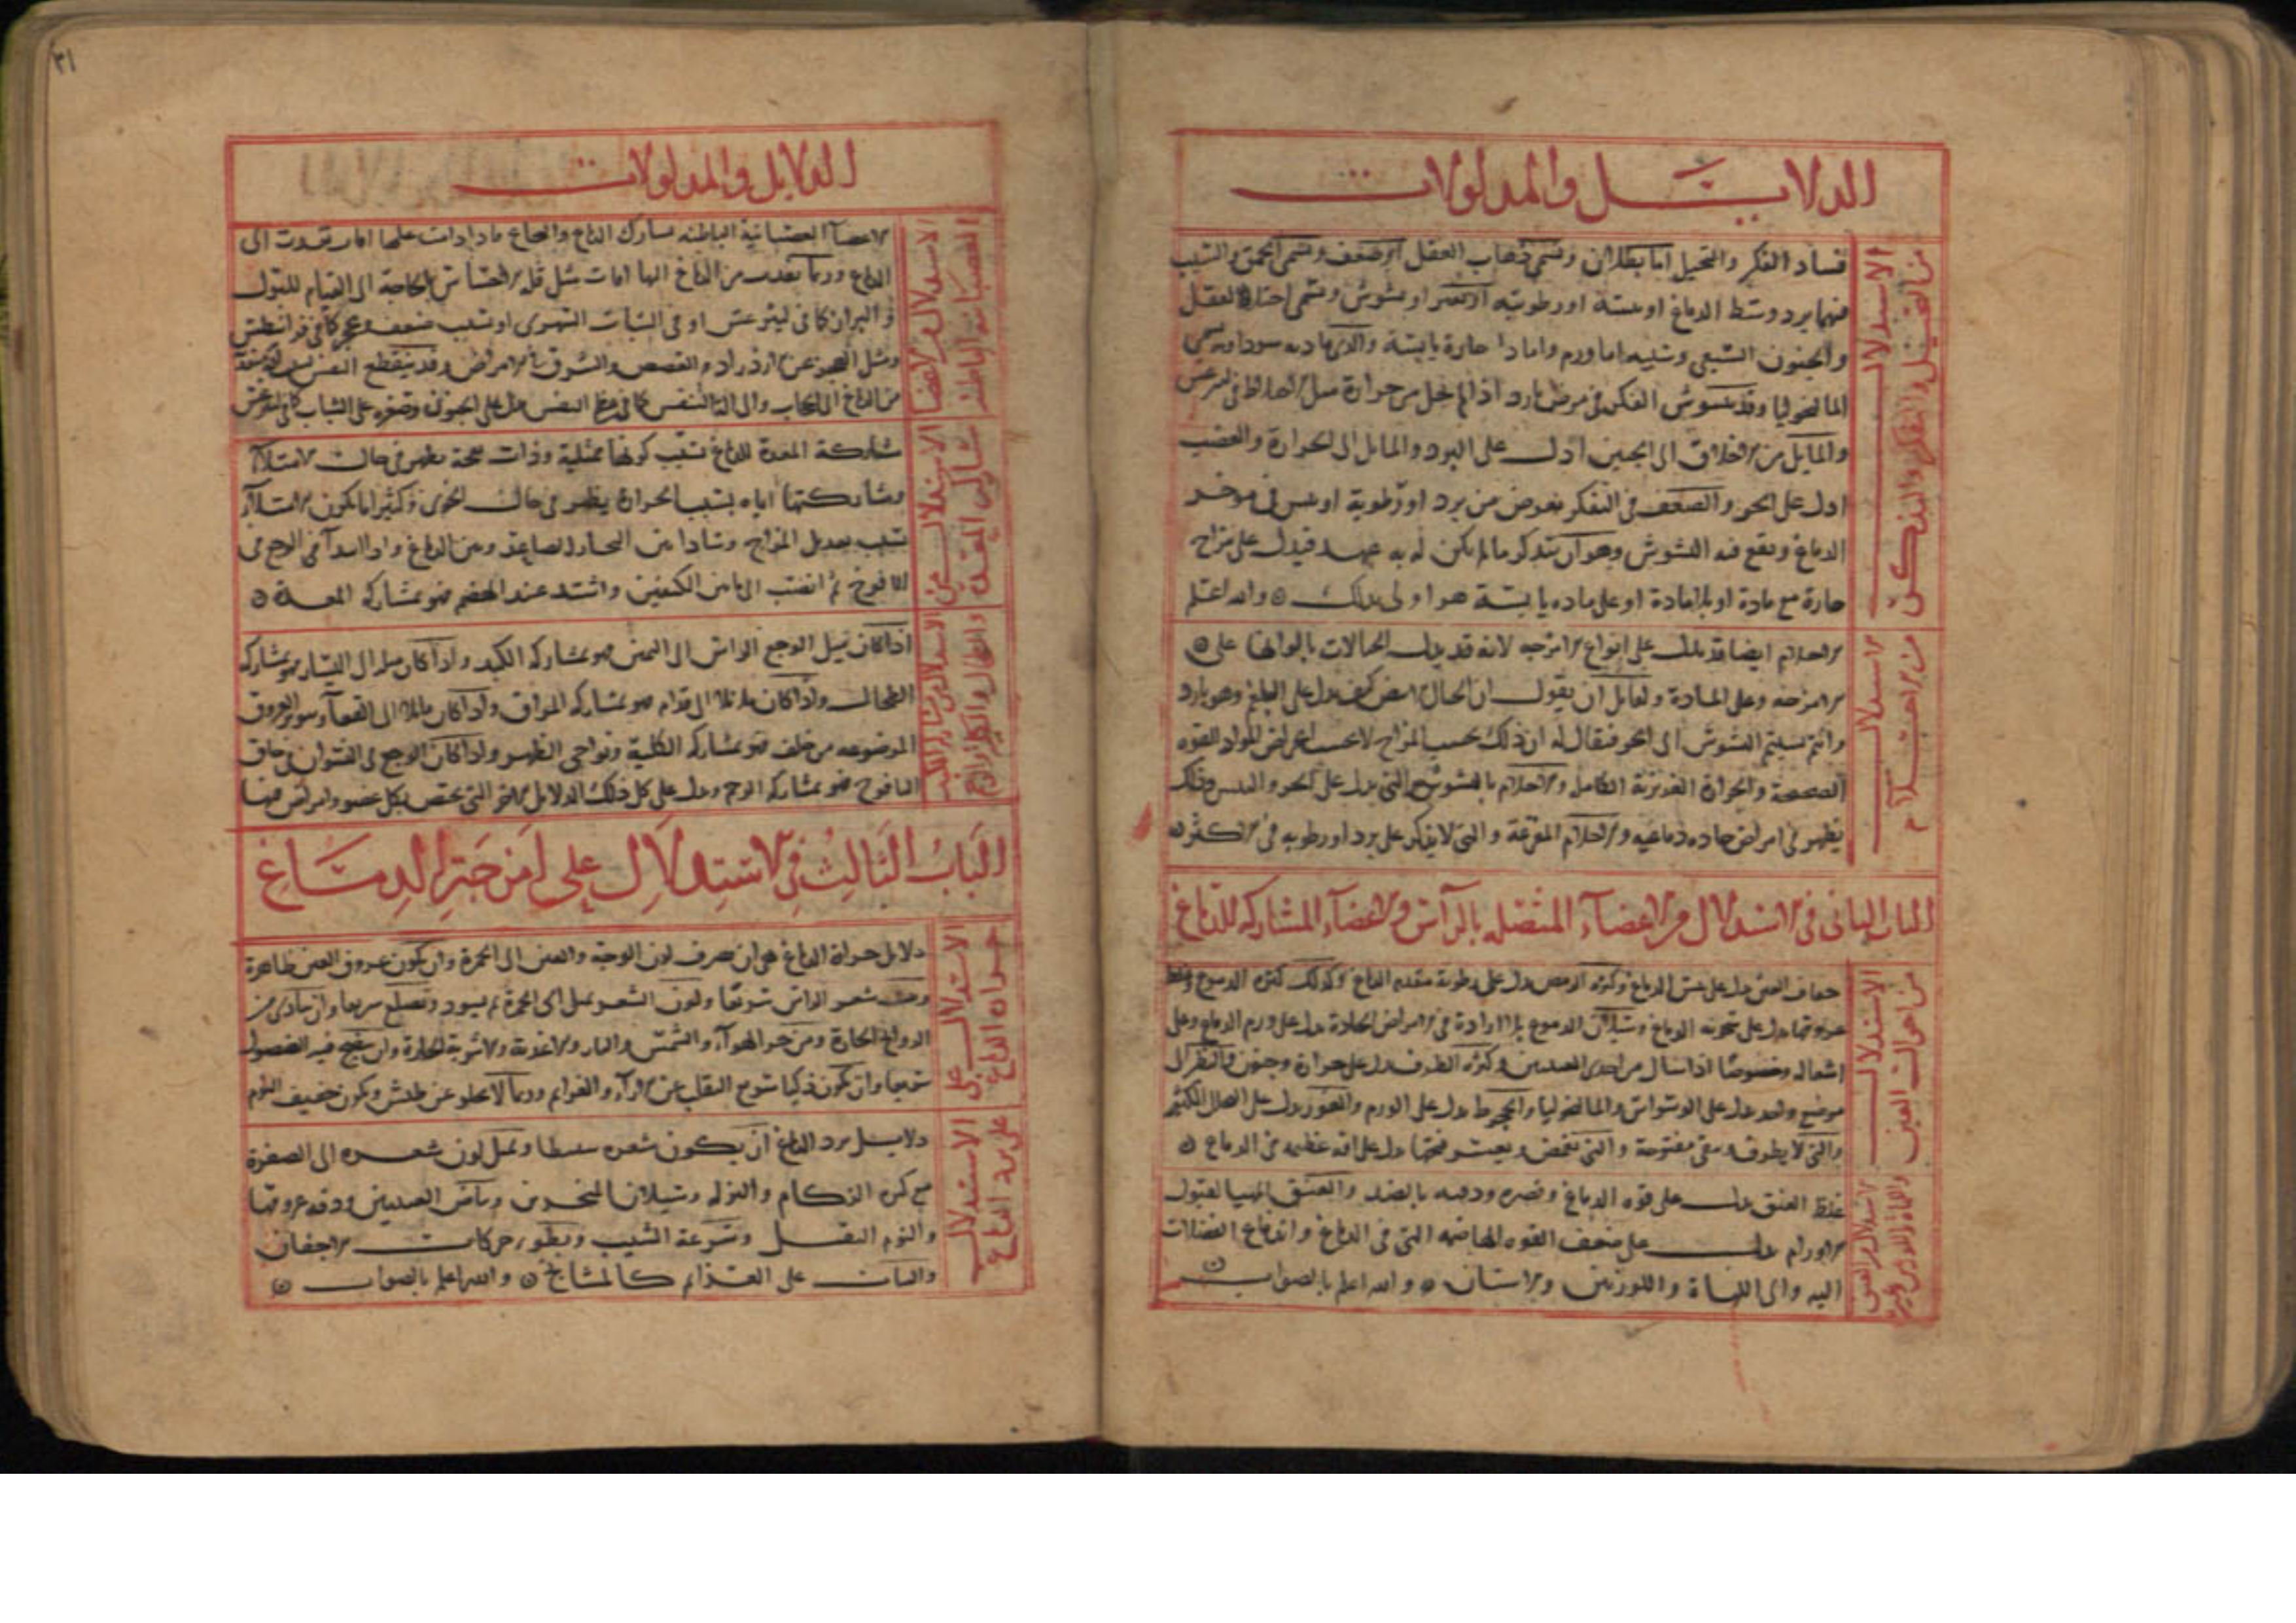 الدلايــــل والمدلولات
الاستدلال
من التخيل والفكر والذكر
فساد الفكر والتخيل اما بطلان وتسمى ذهاب العقل او ضعف وتسمى الحمق والسبب
فيهما برد وسط الدماغ او يبسه او رطوبته او
والجنون السبعي وسببه اما ورم واما مادة حارة يابسة
المالنخوليا وقد يتشوش الفكر في مرض بارد اذا لم يخل من حرارة مثل
والمايل من الاخلاق الى الجبن ادل على البرد والمايل الى الحرارة والغضب
ادل على الحر والضعف في التفكر يعرض من برد او رطوبة او يبس في موخر
الدماغ ويقع فيه التشوش وهو ان يتذكر ما لم يكن له به عهد فيدل على مزاج
حارة مع مادة او بلا مادة او على ماده يابسة هو اولى بذلك والله اعلم
الاستدلال
من الاحلام
الاحلام ايضا قد تدل على انواع الامزجه لانه قد
الامزجه وعلى المادة ولقايل ان يقول ان الحال كيف يدل على البلغم وهو بارد
وانتم نسبتم التشوش الى الحر فيقال له ان ذلك بحسب المزاج لا بحسب المواد للقوه
الصحيحة والحرارة الغريزية الكاملة والاحلام التي تدل على الحر واليبس وذلك
يظهر في امراض حاده دماغيه والاحلام المفزعة والتي لا يذكر على برد او رطوبه في الاكثر
الباب الثاني في الاستدلال من الاعضآء المتصله بالرأس والاعضآء المشاركه للدماغ
الاستدلال
من احوال العين
جفاف العين يدل على يبس الدماغ وكثره الرمص يدل على رطوبة مقدم الدماغ وكذلك كثره الدموع
عروقها يدل على سخونه الدماغ وسيلان الدموع بلا ارادة في الامراض الحادة يدل على ورم الدماغ وعلى
اشعاله وخصوصًا اذا سال من احدى العينين وكثره الطرف يدل على حرارة وجنون والنظر الى
موضع واحد يدل على الوسواس والمالنخوليا والجحوظ يدل على الورم والغؤر يدل على التحلل الكثير
والتي لا يطرف وتبقى مفتوحة والتي تغمض ويعسر فتحها يدل على افة عظيمه في الدماغ
الاستدلال من العنق
واللهاة واللوزتين
غلظ العنق يدل على قوه الدماغ وقصره ودقته بالضد والعنق المهيا لقبول
الاورام يدل على ضعف القوه الهاضمه التي في الدماغ واندفاع الفضلات
اليه والى اللهاة واللوزتين والاسنان والله اعلم بالصواب
٣١
الدلايل والمدلولات
الاستدلال من الاعضا
العصبانية الباطنة
الاعضآ العصبانية الباطنه مشارك الدماغ والنخاع
الدماغ وربما تعدت من الدماغ اليها افات مثل قلة الاحساس بالحاجة الى القيام للتبول
والبراز كما في ليثرغس او في السبات السهري او بسبب ضعف وعجز كما في فرانيطس
ومثل العجز عن ازدراد والغصص والشرق في الامراض وقد ينقطع النفس
من الدماغ الى الحجاب والى الة التنفس
الاستدلال من
مشاركة المعدة
مشاركة المعدة للدماغ بسبب كونها ممتلية وذات يظهر في حالت الامتلا
ومشاركتها اياه بسبب الحرارة يظهر في حالت الخوى وكثيرا ما يكون الامتلآ
بسبب تعديل المزاج وسادا بين البخار الصاعد وبين الدماغ واذا ابتدآ في الوجع من
اليافوخ ثم انصب الى ما بين الكتفين واشتد عند الهضم فهو بمشاركه المعدة
الاستدلال من مشاركة الكبد
والطحال والكلى
اذا كان ميل الوجع الراس الى اليمين فهو بمشاركه الكبد واذا كان ميله الى اليسار فهو بمشاركه
الطحال واذا كان مايلا الى قدام فهو بمشاركه المراق واذا كان مايلا الى القفا
الموضوعه من خلف فهو بمشاركه الكلية ونواحي الظهر واذا كان الوجع في النسوان في حاق
اليافوخ فهو بمشاركه الرحم ويدل على كل ذلك الدلايل الاخر التي تختص بكل عضو
الباب الثالث في الاستدلال على امزجة الدماغ
الاستدلال على
حرارة الدماغ
دلايل حرارة الدماغ هي ان لون الوجه والعين الى الحمرة وان يكون عروق العين ظاهرة
شعر الراس سريعا ولون الشعر يميل الى الحمرة ثم يسود وتصلع سريعا وان يتاذى من
الروايح الحارة ومن حر الهوآء والشمس والنار والاغذية والاشربة الحارة وان
سريعا وان يكون ذكيا سريع التقلب عن الارآء والعزايم وربما لا يخلو عن طيش ويكون خفيف النوم
الاستدلال
على برد الدماغ
دلايــل برد الدماغ ان يكون شعره سبطا ويميل لون شعره الى الصفرة
مع كثره الزكام والنزله وسيلان المنخرين وبياض العينين ودقه عروقها
والنوم الثقيل وسرعة الشيب وبطو حركات الاجفان
والثبات على العزايم كالمشايخ والله اعلم بالصواب